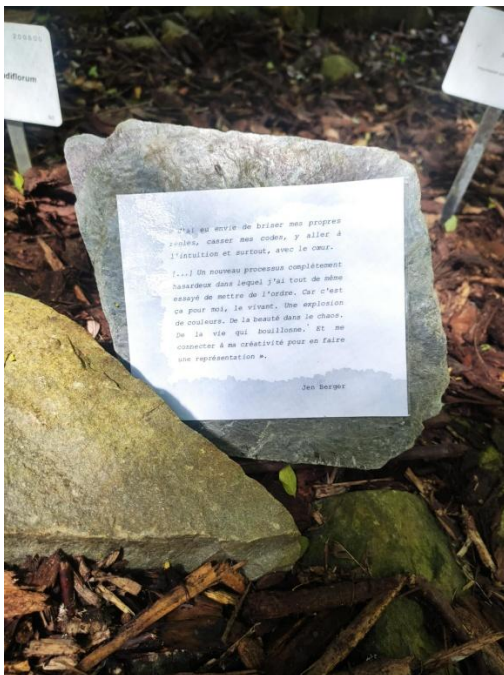 200601
diflorum
« J'ai eu envie de briser mes propres
règles, casser mes codes, y aller à
l'intuition et surtout, avec le cœur.
[...] Un nouveau processus complètement
hasardeux dans lequel j'ai tout de même
essayé de mettre de l'ordre. Car c'est
ça pour moi, le vivant. Une explosion
de couleurs. De la beauté dans le chaos.
De la vie qui bouillonne. Et me
connecter à ma créativité pour en faire
une représentation ».
Jen Berger